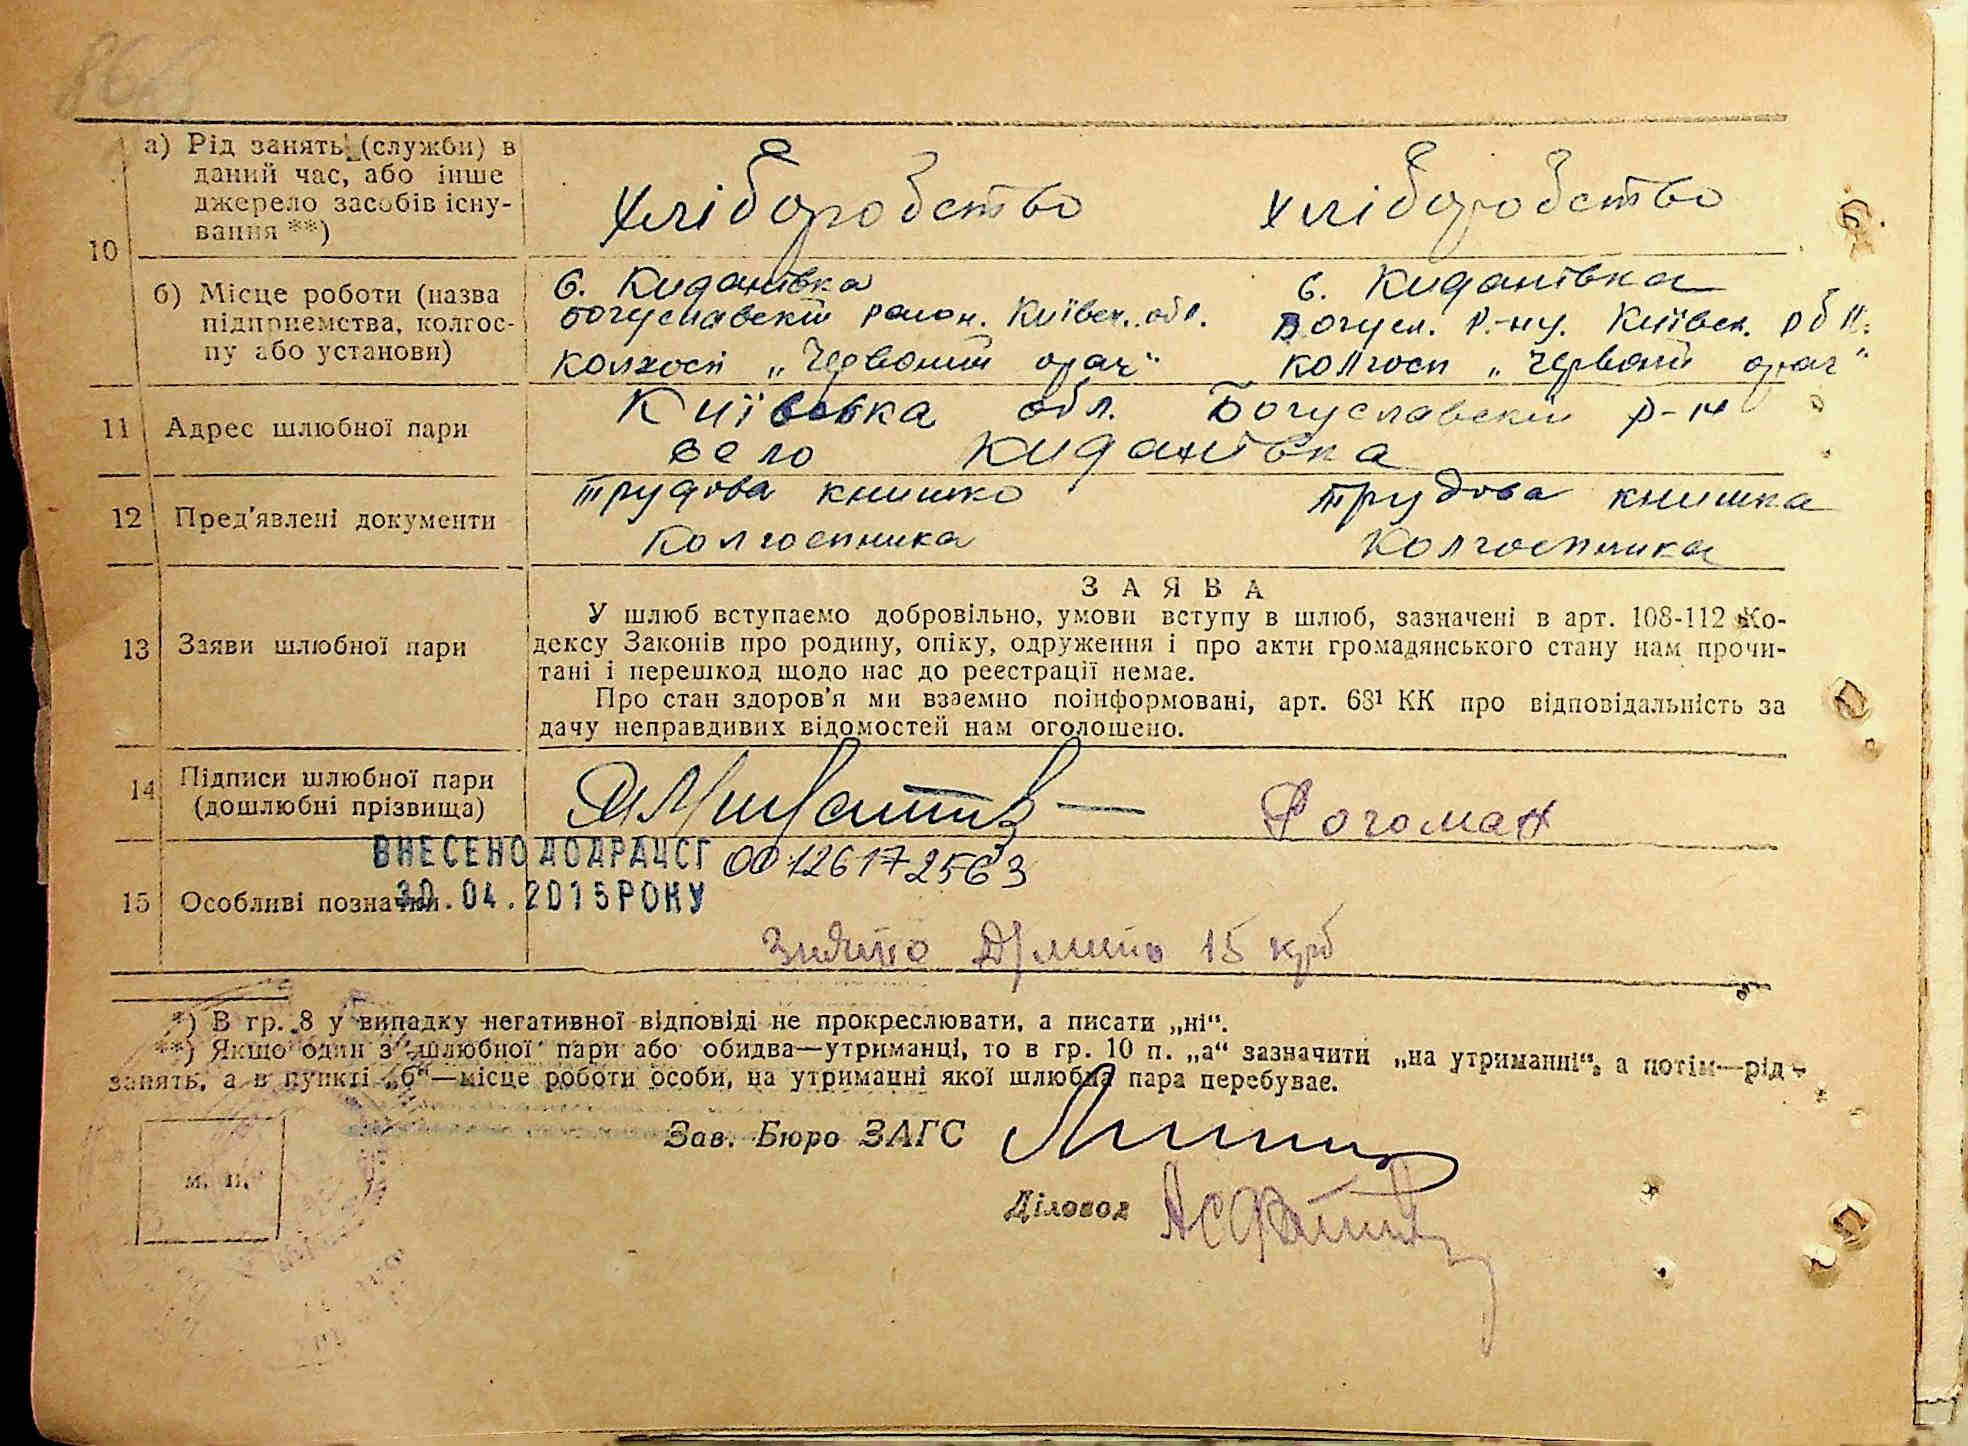 10
а) Рід занять (служби) в
даний час, або інше
джерело засобів існу-
вання **)
хліборобство хліборобство
б) Місце роботи (назва
підприемства, колгос-
пу або установи)
с. Киданівка
богуславский район. Київск. обл.
колхосп „Червоний орач“
с. Киданівка
Богусл. р-ну. Київск. обл.
колгосп „Червоний орач“
11 Адрес шлюбної пари
Київська обл. Богуславский р-н
село Киданівка
12 Пред'явлені документи
трудова книшка
Колгоспника
трудова книшка
Колгоспника
13 Заяви шлюбної пари
ЗАЯВА
У шлюб вступаємо добровільно, умови вступу в шлюб, зазначені в арт. 108-112 Ко-
дексу Законів про родину, опіку, одруження і про акти громадянського стану нам прочи-
тані і перешкод щодо нас до реєстрації немає.
Про стан здоров'я ми взаємно поінформовані, арт. 68¹ КК про відповідальність за
дачу неправдивих відомостей нам оголошено.
14 Підписи шлюбної пари
(дошлюбні прізвища)
Рогоман
ВНЕСЕНО ДО ДРАЦСГ 00126172563
30.04.2015 РОКУ
15 Особливі позначки
15 крб
*) В гр. 8 у випадку негативної відповіді не прокреслювати, а писати „ні“.
**) Якщо один з шлюбної пари або обидва—утриманці, то в гр. 10 п. „а“ зазначити „на утриманні“, а потім—рід
занять, а в пункті „б“—місце роботи особи, на утриманні якої шлюбна пара перебуває.
Зав. Бюро ЗАГС
м. п.
Діловод